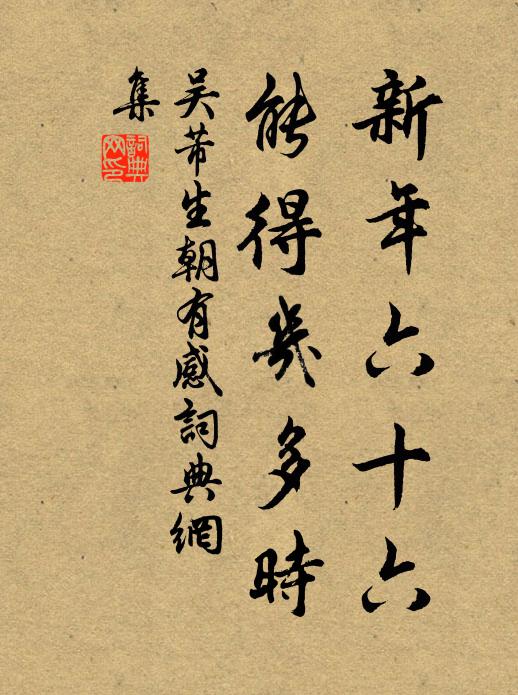 新年六十六
能得幾多時
吳芾生朝有感詞典網
集
詞典網印